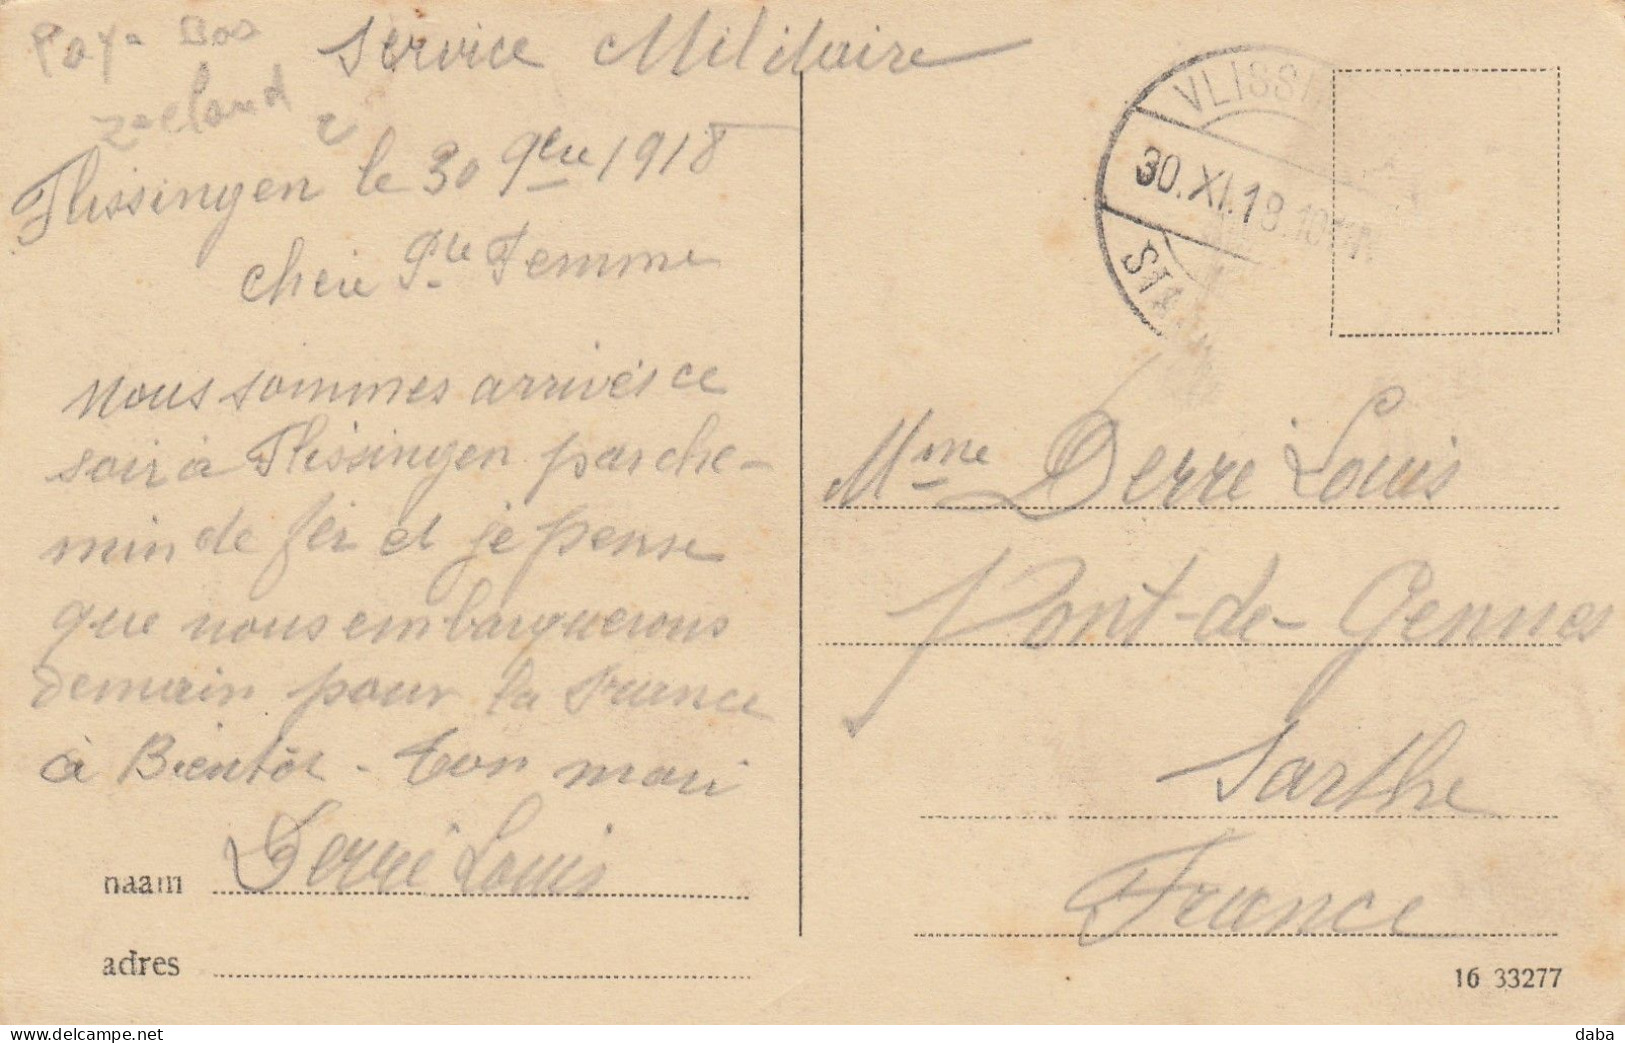 Pays Bas
Zeeland
Service Militaire
Flissingen le 30 9bre 1918
chère Pte Femme
nous sommes arrivés ce
soir à Flissingen par che-
min de fer et je pense
que nous embarquerons
demain pour la France
à Bientôt - Ton mari
Derré Louis
naam
adres
VLISSIN
30.XI.18.10
STA
Mme Derré Louis
Pont-de-Gennes
Sarthe
France
16 33277
daba